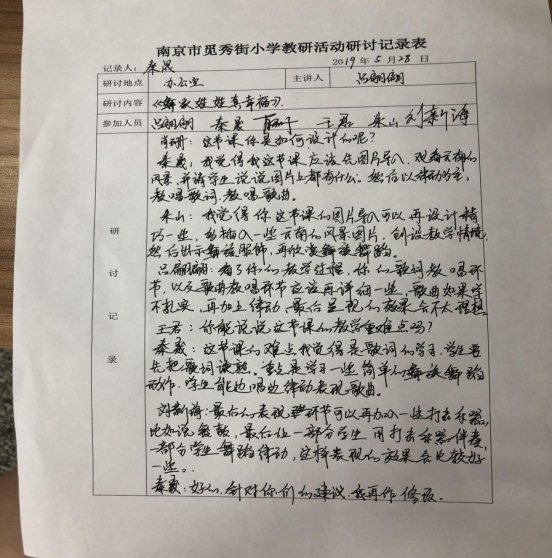 南京市觅秀街小学教研活动研讨记录表
记录人：秦晟 2019年5月28日
研讨地点 办公室 主讲人 吕翩翩
研讨内容 《彝家娃娃真幸福》
参加人员 吕翩翩 秦晟 肖研 王君 朱山 刘新海
研讨记录
肖研：这节课你是如何设计的呢？
秦晟：我觉得我这节课应该先图片导入，观看云南的
风景，并请学生说说图片上都有什么。然后以律动为主，
教唱歌词，教唱歌曲。
朱山：我觉得你这节课的图片导入可以再设计精
巧一些，多插入一些云南的风景图片，创设教学情境，
然后出示彝族服饰，再欣赏彝族舞蹈。
吕翩翩：看了你的教学过程，你的歌词教唱环
节，以及歌曲教唱环节应该再详细一些，歌曲如果学
不扎实，再加上律动，最后呈现的效果会不太理想
王君：你能说说这节课的教学重难点吗？
秦晟：这节课的难点我觉得是歌词的学习，学生要
先把歌词读熟。重点是学习一些简单的彝族舞蹈
动作，学生能边唱边律动表现歌曲。
刘新海：最后的表现环节可以再加入一些打击乐器，
比如说鼓，最后让一部分学生用打击乐器伴奏，
一部分学生舞蹈律动，这样表现的效果会比较好
一些。
秦晟：好的，针对你们的建议，我再作修改。